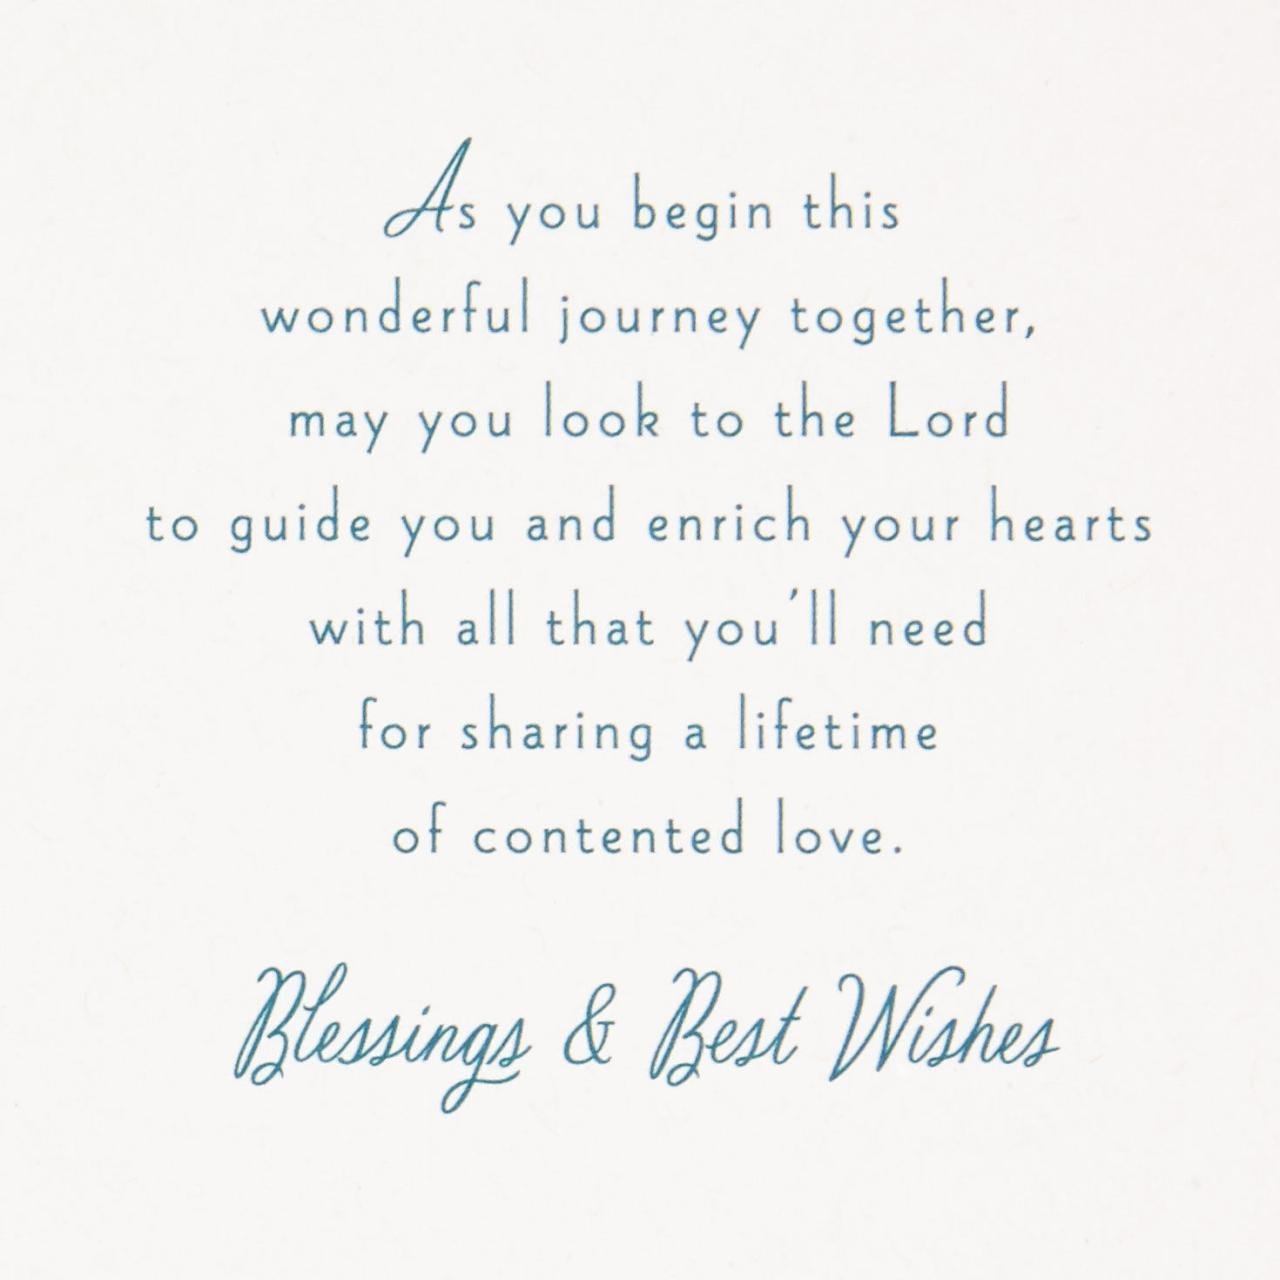 As you begin this
wonderful journey together,
may you look to the Lord
to guide you and enrich your hearts
with all that you'll need
for sharing a lifetime
of contented love.
Blessings & Best Wishes